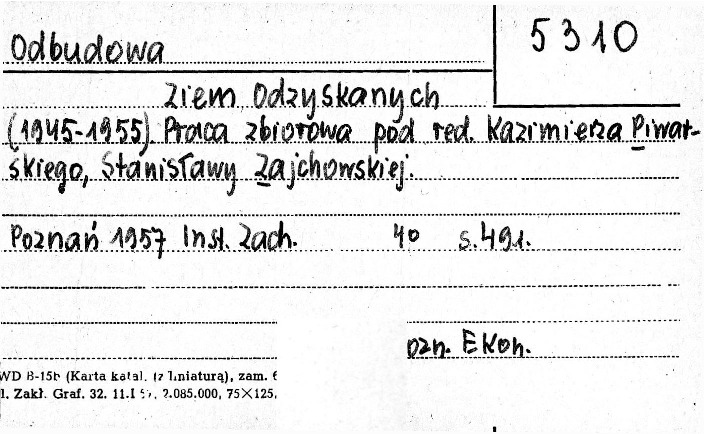 Odbudowa
5310
Ziem Odzyskanych
(1945-1955) Praca zbiorowa pod red. Kazimierza Piwar-
skiego, Stanisławy Zajchowskiej.
Poznań 1957 Inst. Zach. 4° s.491.
ozn. Ekon.
WD B-15b (Karta katal. (z liniaturą), zam. 6
l. Zakł. Graf. 32. 11.I 57. 2.085.000, 75×125,